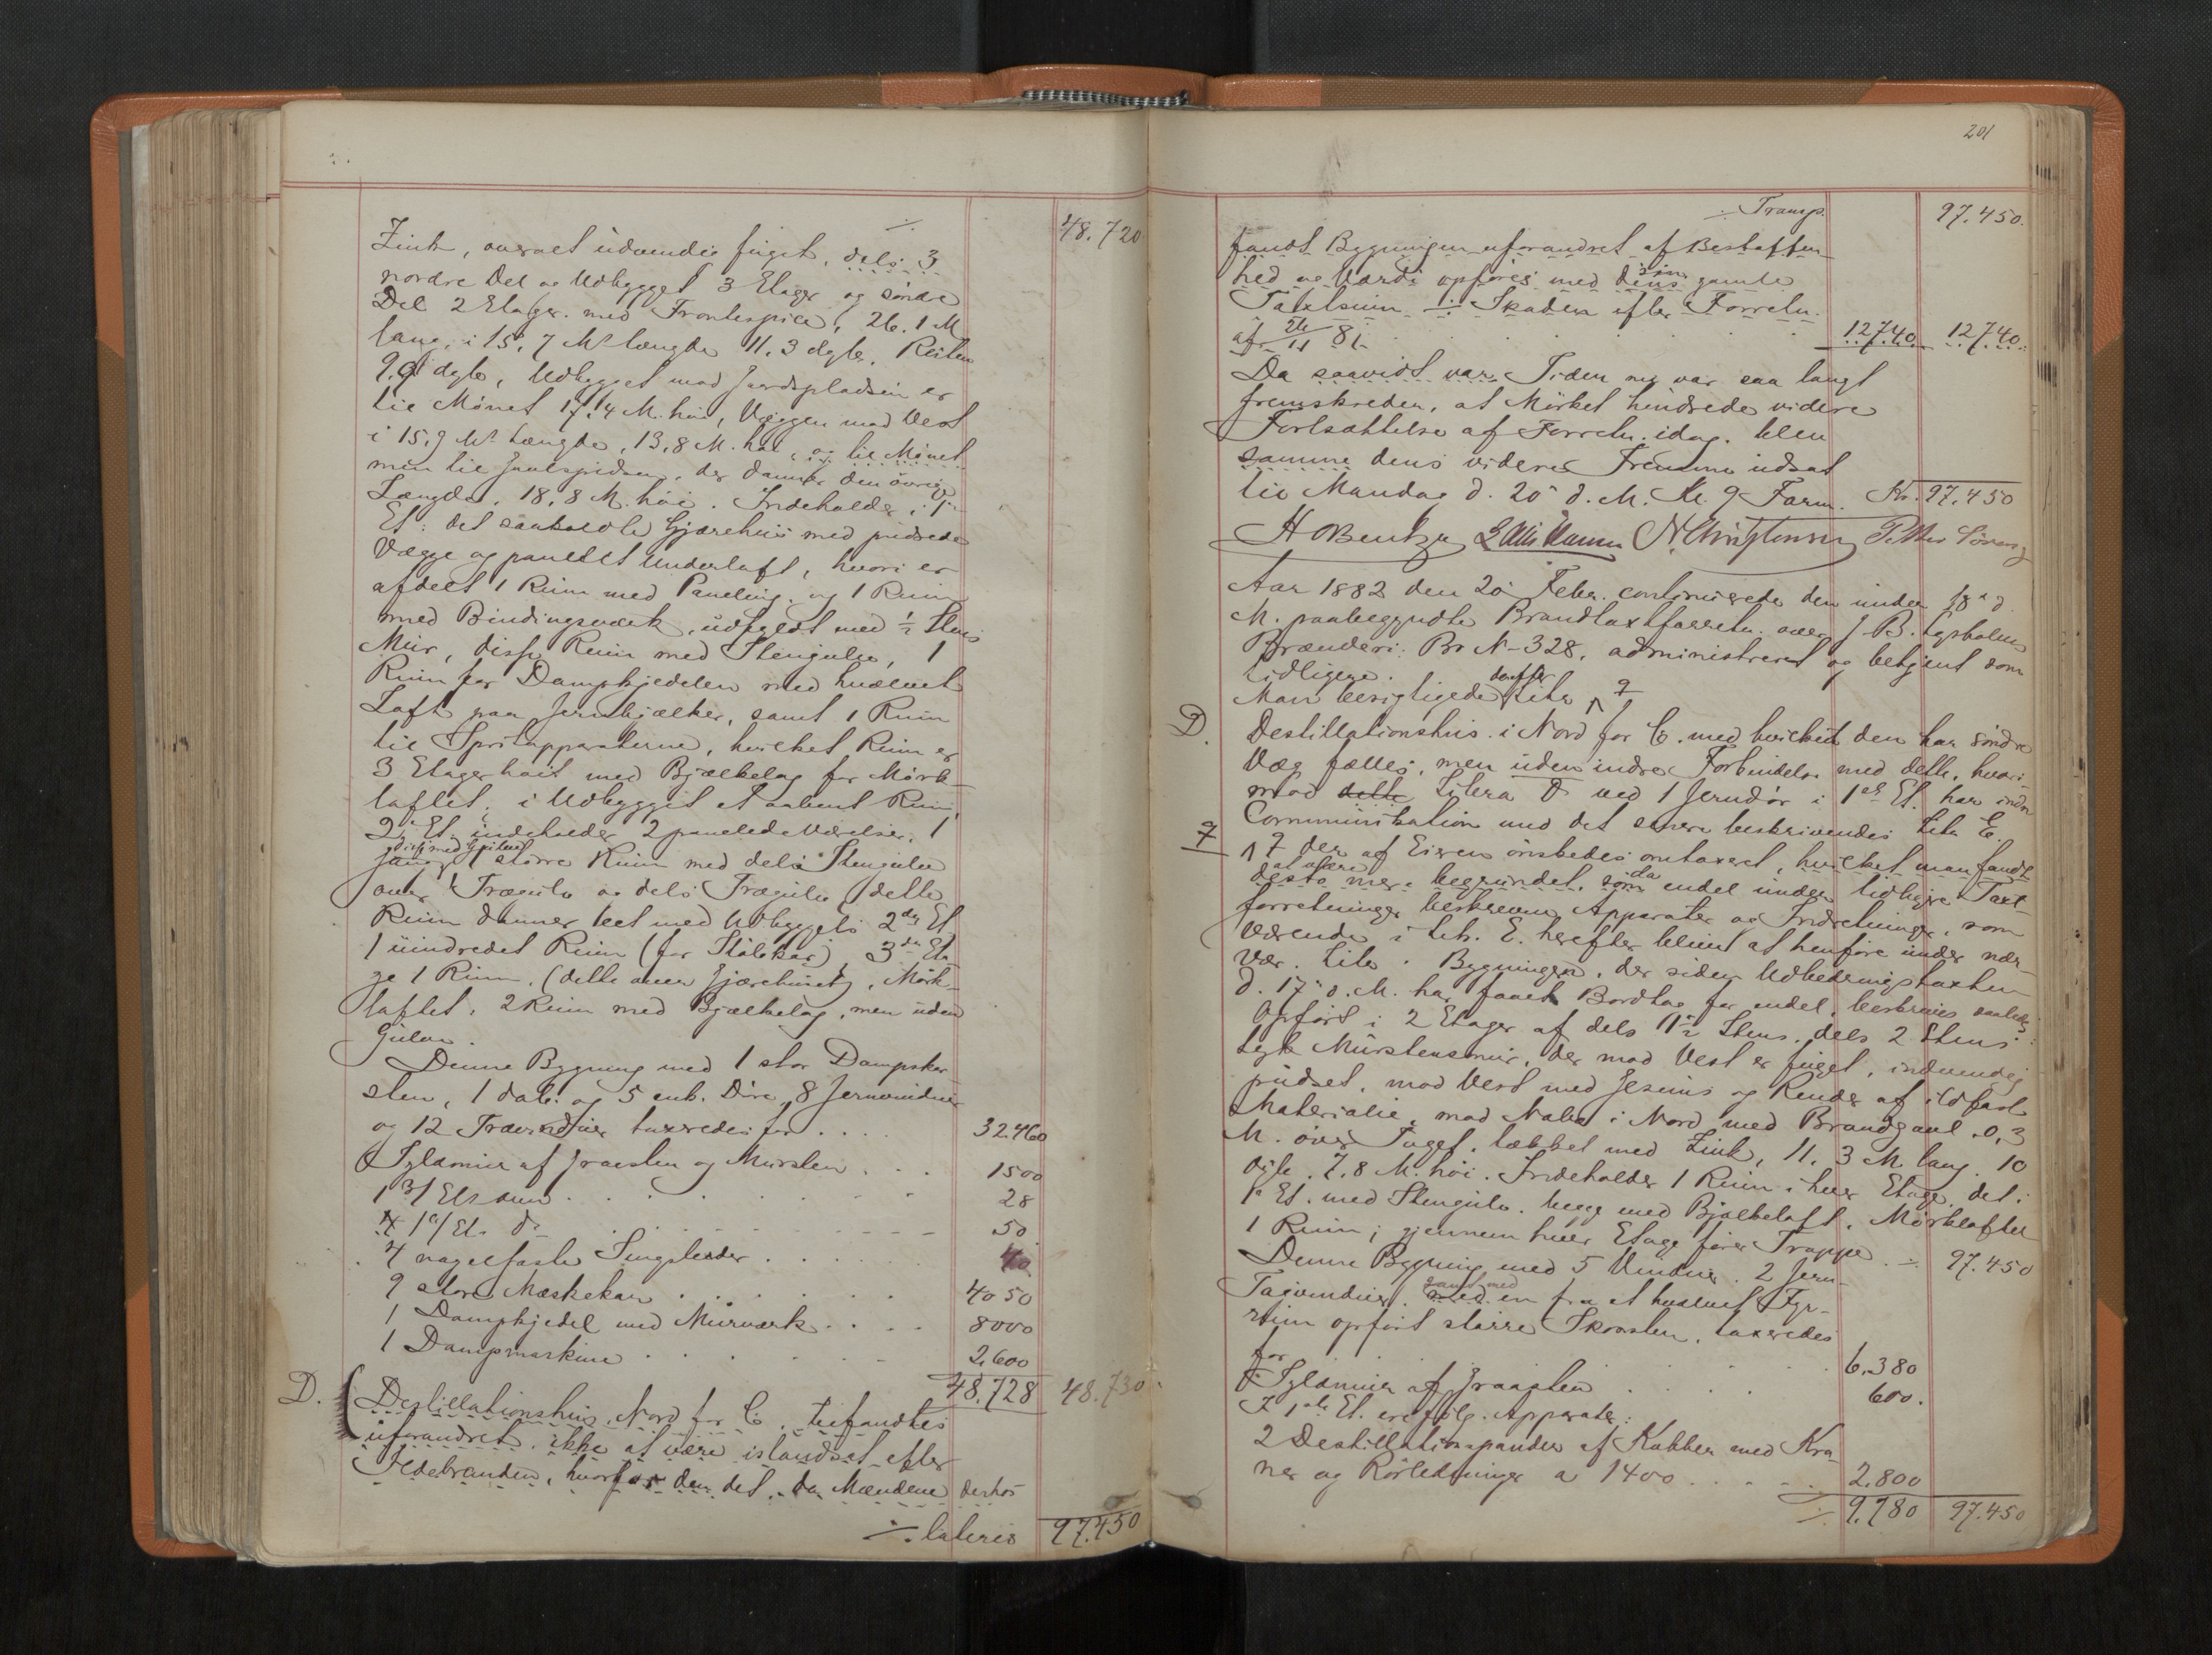 ÷ 48.720
Zink, overalt udvendig fuget, dels 3
nordre Del og Udbygget 3 Etager og søndre
Del 2 Etager med Frontespice, 26.1 M
lang, i 15,7 M's længde 11,3 dyb, Resten
9.9 dyb, Udbygget mod Gaardspladsen er
til Mønet 17,4 M. høi, Væggen mod Vest
i 15,9 M's Længde, 13,8 M. høi, og til Mønet
men til Gavlspidsen, der danner den øvrige
Længde, 18,8 M. høi. Indeholder i 1ste
Et: det saakaldte Gjærehus med pudsede
Vægge og panelet Underloft, hvori er
afdelt 1 Rum med Paneling og 1 Rum
med Bindingsværk, udfyldt med ½ Stens
Mur, disse Rum med Stengulv, 1
Rum for Dampkjedelen med hvælvet
Loft paa Jernbjælker, samt 1 Rum
til Spritapparaterne, hvilket Rum er
3 Etager høit med Bjælkelag for Mørk-
loftet, i Udbygget et aabent Rum,
2den Et. indeholder 2 panelede Værelser, 1
Gang, 1 større Rum med dels Stengulv
over Trægulv og dels Trægulv, dette
Rum danner eet med Udbyggets 2den Et
1 uindredet Rum (for Kølekar), 3die Eta-
ge 1 Rum, (dette over Gjærehuset), Mørk-
loftet, 2 Rum med Bjælkelag, men uden
Gulve.
Denne Bygning med 1 stor Dampskor-
sten, 1 dob. og 5 enk. Døre, 8 Jernvinduer
og 12 Trævinduer taxeredes for . . . . 32460
Syldmur af Graasten og Mursten . . . 1500
1 3/Et. ovn . . . . . . . 28
1 1/Et. do . . . . . . 50
4 nagelfaste . . . . . 40
9 store Mæskekar . . . . . . 4050
1 Dampkjedel med Murværk . . . . 8000
1 Dampmaskine . . . . . . 2,600
48.728 48.730
D. Destillationshus, Nord for C, befandtes
uforandret, ikke at være istandsat efter
Ildebranden, hvorfor den det, da Mændene derhos
÷ lateris 97.450
201
÷ Transp. 97.450.
fandt Bygningen uforandret af Beskaffen-
hed og Værdi opføres med dens sin gamle
Taxtsum ÷ Skaden efter Forretn.
af 26/11 81 . . . . . . 12740 12740.
Da saavidt var Tiden nu var saa langt
fremskreden, at Mørket hindrede videre
Fortsættelse af Forretn. idag, blev
samme dens videre Fremme udsat
til Mandag d. 20de d. M. Kl. 9 Form. Kr. 97.450
H Bentzen N. Christensen Petter
Aar 1882 den 20 Febr. continueredes den under 18de d.
M. paabegyndte Brandtaxtforretn. over J. B. Lysholms
Brænderi: Br. N- 328, administreret og betjent som
tidligere.
Man besigtigede derefter Litr
D. Destillationshus i Nord for C. med hvilket den har søndre
Væg fælles, men uden indre Forbindelse med dette, hvori-
mod dette Litera D ved 1 Jerndør i 1ste Et. har indre
Communikation med det senere beskrivendes Litr E.
der af Eieren ønskedes omtaxeret, hvilket man fandt
desto mere at være begrundet, som da endel under tidligere Taxt-
forretninger beskrevne Apparater og Indretninger, som
værende i Litr. E. herefter bliver at henføre under nær-
vær. Litr. Bygningen, der siden Udbedringstaxten
d. 17de d. M. har faaet Bordtag for endel, beskrives saaledes:
Opført i 2 Etager af dels 1½ Stens, dels 2 Stens
tyk Murstensmur, der mod Vest er fuget, indvendig
pudset, mod Vest med Gesims og Render af ildfast
Materiale, mod Nabo i Nord med Brandgavl 0,3
M. over Taget, tækket med Zink, 11,3 M. lang, 10
dyb, 7,8 M. høi. Indeholder 1 Rum i hver Etage, det i
1ste Et. med Stengulv, begge med Bjælkeloft, Mørkloftet
1 Rum; gjennem hver Etage fører Trappe ÷ 97.450
Denne Bygning med 5 Vinduer, 2 Jern-
Tagvinduer, med samt med en fra et hvælvet Fyr-
rum opført større Skorsten, taxeredes
for . . . . . . 6.380
Syldmur af Graasten . . . . 600.
I 1ste Et. ere følg. Apparater:
2 Destillationspander af Kobber med Kra-
ner og Rørledninger a 1400 . . . . 2.800
÷ 9.780 97.450